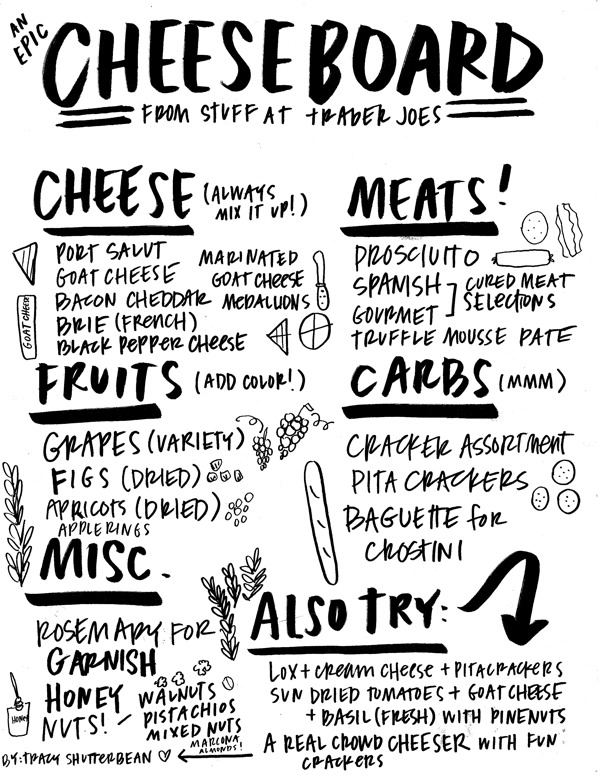 AN EPIC
CHEESE BOARD
FROM STUFF AT TRADER JOES
CHEESE (ALWAYS MIX IT UP!)
PORT SALUT
GOAT CHEESE
BACON CHEDDAR
BRIE (FRENCH)
BLACK PEPPER CHEESE
MARINATED
GOAT CHEESE
MEDALLIONS
GOAT CHEESE
MEATS!
PROSCIUITO
SPANISH
GOURMET
] CURED MEAT
SELECTIONS
TRUFFLE MOUSSE PATE
FRUITS (ADD COLOR!)
GRAPES (VARIETY)
FIGS (DRIED)
APRICOTS (DRIED)
APPLE RINGS
CARBS (MMM)
CRACKER ASSORTMENT
PITA CRACKERS
BAGUETTE for
CROSTINI
MISC.
ROSEMARY FOR
GARNISH
HONEY
HONEY
NUTS! - WALNUTS
PISTACHIOS
MIXED NUTS
MARCONA
ALMONDS!
ALSO TRY:
LOX + CREAM CHEESE + PITA CRACKERS
SUN DRIED TOMATOES + GOAT CHEESE
+ BASIL (FRESH) WITH PINENUTS
A REAL CROWD CHEESER WITH FUN
CRACKERS
BY: TRACY SHUTTERBEAN ♡